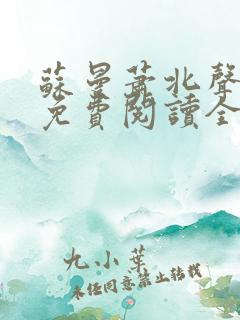 蘇曼蕭北聲
免費閱讀全
九小葉
未經同意禁止轉載